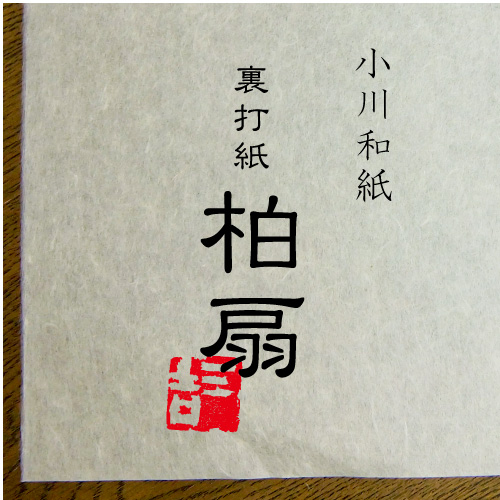 小川和紙
裏打紙
柏扇